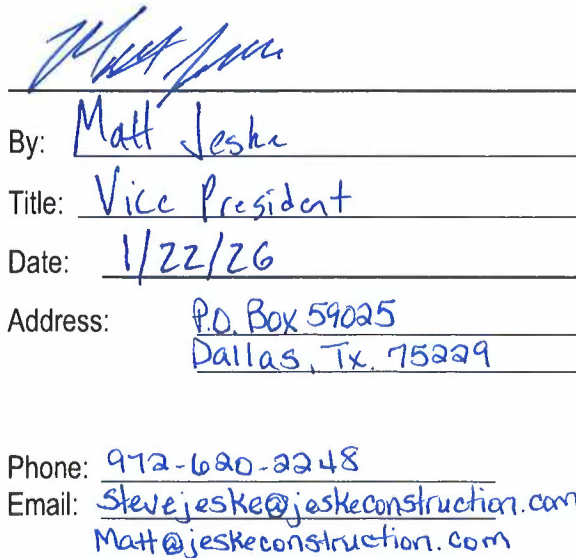 By: Matt Jeske
Title: Vice President
Date: 1/22/26
Address: P.O. Box 59025
Dallas, Tx. 75229
Phone: 972-620-2248
Email: Stevejeske@jeskeconstruction.com
Matt@jeskeconstruction.com